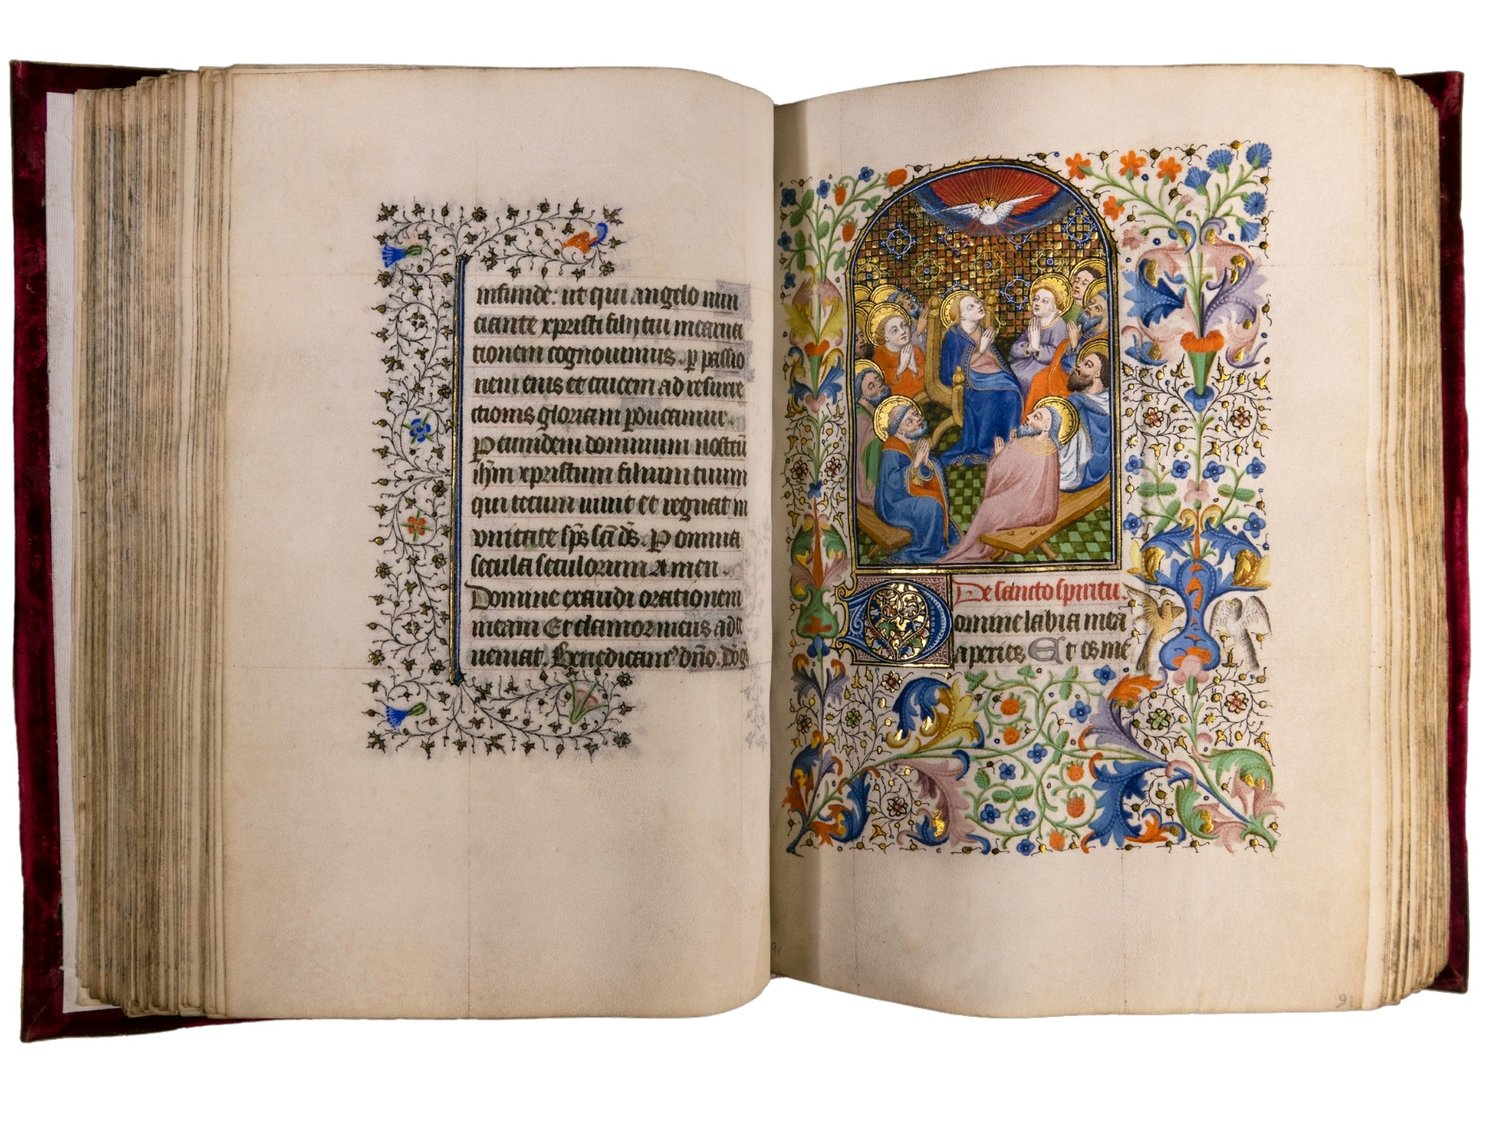 infunde: ut qui angelo nun
ciante xpristi filij tui incarna
tionem cognouimus. p passio
nem eius et crucem ad resurre
ctionis gloriam pducamur.
P eumdem dominum nostrū
ihm xpristum filium tuum
qui tecum uiuit et regnat in
vnitate sps scī ds. P omnia
secula seculorum Amen
Domine exaudi orationem
meam Et clamor meus ad te
ueniat. Benedicam dno. Do
De sancto spiritu.
Domine labia mea
aperies Et os me